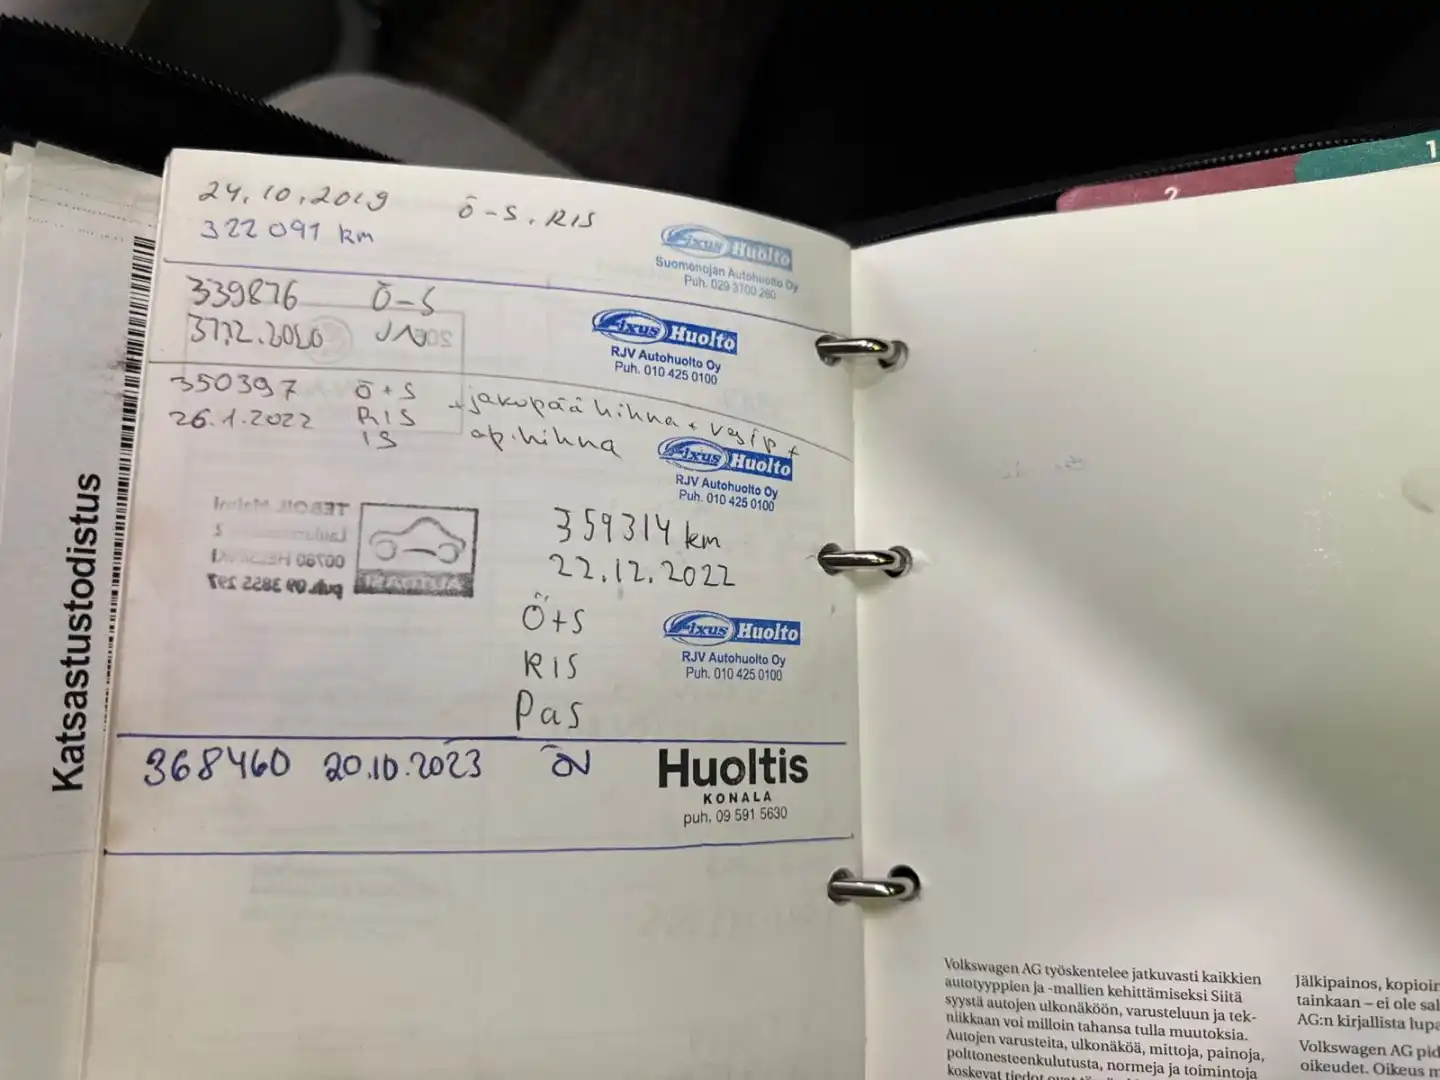 24.10.2019 Ö-S. RIS
322091 km
Fixus Huolto
Suomenojan Autohuolto Oy
Puh. 029 3700 260
339876 Ö-S
2020
Fixus Huolto
RJV Autohuolto Oy
Puh. 010 425 0100
350397 Ö+S + jakopää hihna + vesip +
26.1.2022 RIS ap.hihna
IS
Fixus Huolto
RJV Autohuolto Oy
Puh. 010 425 0100
359314 km
22.12.2022
Ö+S
RIS
Pas
Fixus Huolto
RJV Autohuolto Oy
Puh. 010 425 0100
368460 20.10.2023 ÖV
Huoltis
KONALA
puh. 09 591 5630
Katsastustodistus
2
1
Volkswagen AG työskentelee jatkuvasti kaikkien
autotyyppien ja -mallien kehittämiseksi Siitä
syystä autojen ulkonäköön, varusteluun ja tek-
niikkaan voi milloin tahansa tulla muutoksia.
Autojen varusteita, ulkonäköä, mittoja, painoja,
polttonesteenkulutusta, normeja ja toimintoja
koskevat tiedot ovat
Jälkipainos, kopioin
tainkaan – ei ole sal
AG:n kirjallista lupa
Volkswagen AG pid
oikeudet. Oikeus m